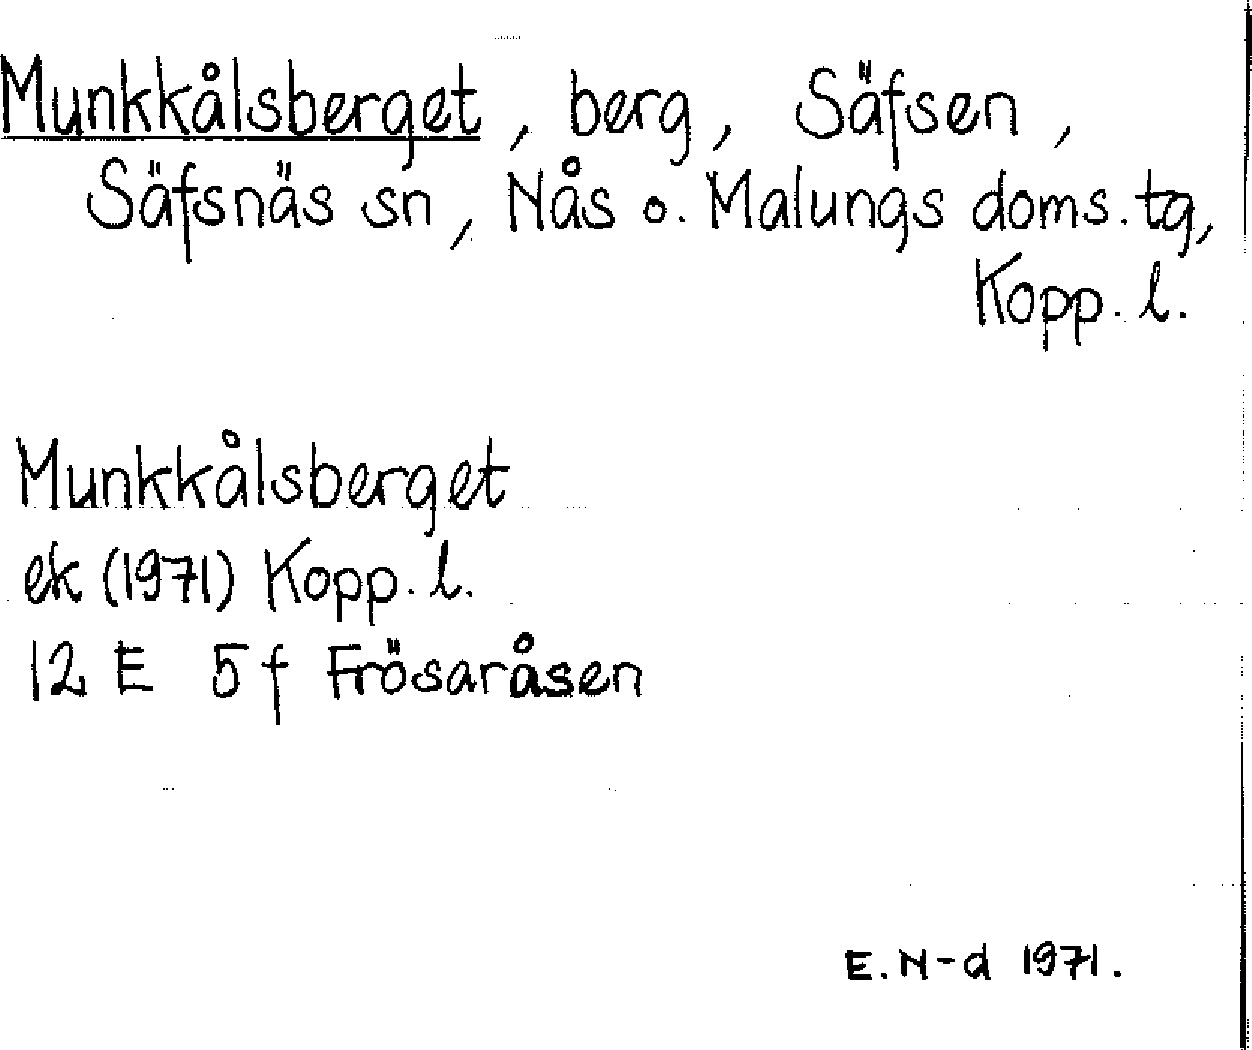 Munkkålsberget, berg, Säfsen,
Säfsnäs sn, Nås o. Malungs doms.tg,
Kopp. l.
Munkkålsberget
ek (1971) Kopp. l.
12 E 5 f Frösaråsen
E.N-d 1971.